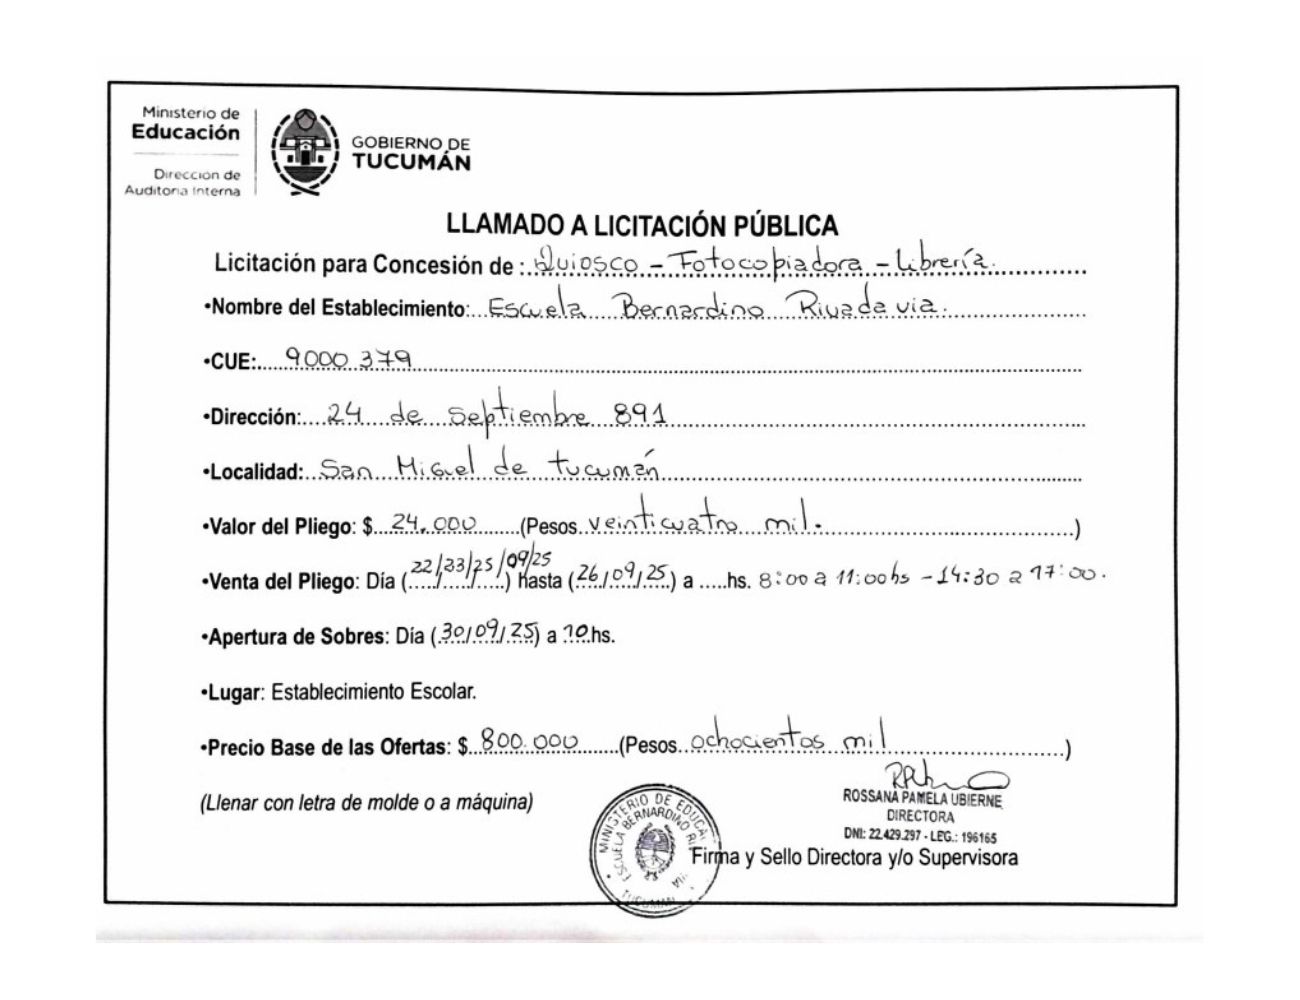 Ministerio de
Educación
Dirección de
Auditoria Interna
GOBIERNO DE
TUCUMÁN
LLAMADO A LICITACIÓN PÚBLICA
Licitación para Concesión de : Quiosco - Fotocopiadora - Librería.
•Nombre del Establecimiento: Escuela Bernardino Rivadavia.
•CUE: 9000 379
•Dirección: 24 de Septiembre 891
•Localidad: San Miguel de Tucumán
•Valor del Pliego: $ 24.000 (Pesos veinticuatro mil. )
•Venta del Pliego: Día (22/23/25/09/25) Hasta (26/09/25) a .....hs. 8:00 a 11:00 hs - 14:30 a 17:00.
•Apertura de Sobres: Día (30/09/25) a 10 hs.
•Lugar: Establecimiento Escolar.
•Precio Base de las Ofertas: $ 800.000 (Pesos ochocientos mil )
(Llenar con letra de molde o a máquina)
ROSSANA PAMELA UBIERNE
DIRECTORA
DNI: 22.429.297 - LEG.: 196165
Firma y Sello Directora y/o Supervisora
MINISTERIO DE EDUCA
ESCUELA BERNARDINO RI VIA
TUCUMAN